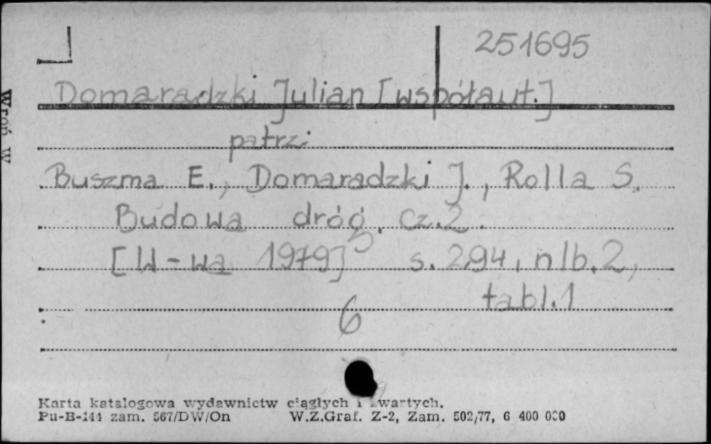 251695
Domaradzki Julian [współaut.]
patrz
Buszma E., Domaradzki J., Rolla S.
Budowa dróg. Cz. 2.
[W-wa 1979] 5 s. 294, nlb. 2,
tabl. 1
6
Karta katalogowa wydawnictw ciągłych i zwartych.
Pu-B-144 zam. 567/DW/On W.Z.Graf. Z-2, Zam. 502/77, 6 400 000